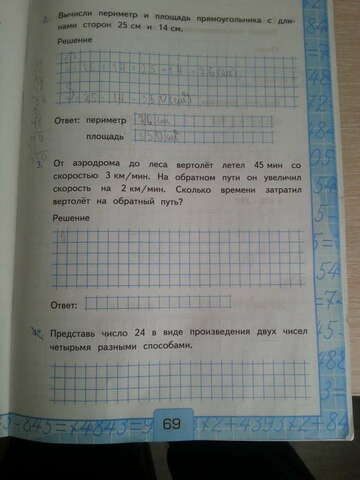 2. Вычисли периметр и площадь прямоугольника с дли-
нами сторон 25 см и 14 см.
Решение
Ответ: периметр
площадь
3. От аэродрома до леса вертолёт летел 45 мин со
скоростью 3 км/мин. На обратном пути он увеличил
скорость на 2 км/мин. Сколько времени затратил
вертолёт на обратный путь?
Решение
Ответ:
4. Представь число 24 в виде произведения двух чисел
четырьмя разными способами.
69